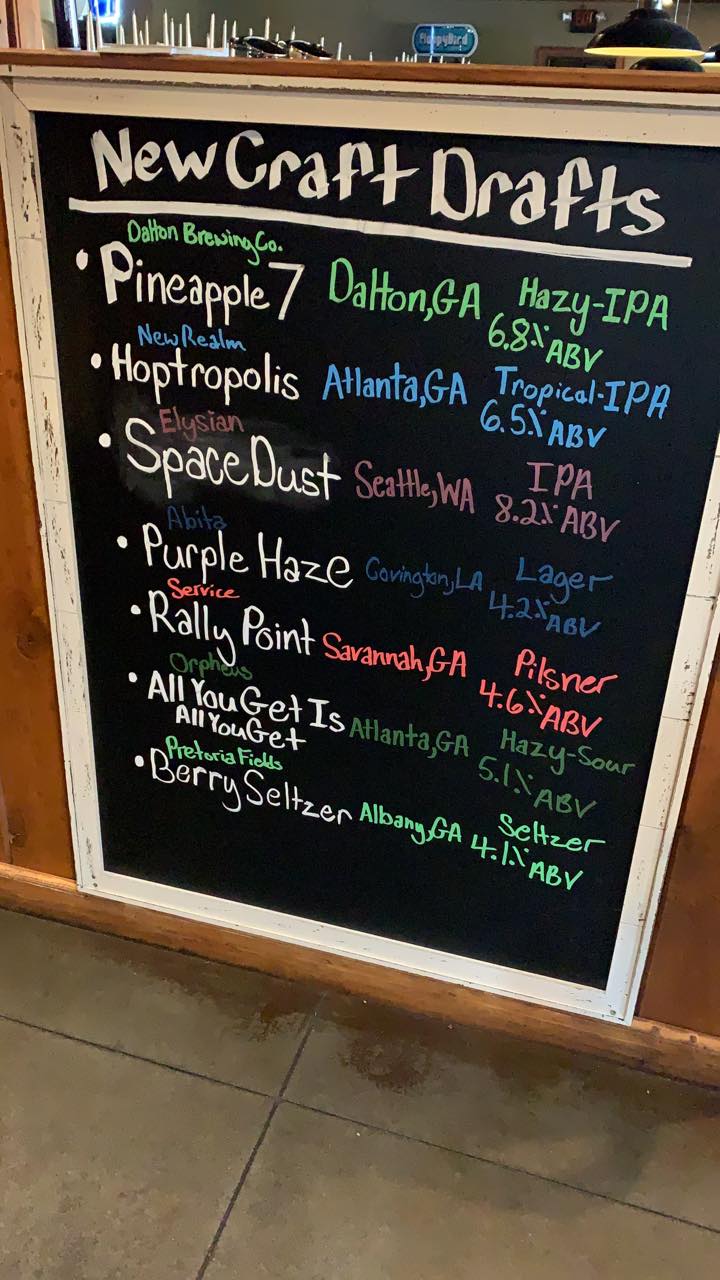 New Craft Drafts
Dalton Brewing Co.
• Pineapple 7 Dalton, GA Hazy-IPA 6.8% ABV
New Realm
• Hoptropolis Atlanta, GA Tropical-IPA 6.5% ABV
Elysian
• Space Dust Seattle, WA IPA 8.2% ABV
Abita
• Purple Haze Covington, LA Lager 4.2% ABV
Service
• Rally Point Savannah, GA Pilsner 4.6% ABV
Orpheus
• All You Get Is All You Get Atlanta, GA Hazy-Sour 5.1% ABV
Pretoria Fields
• Berry Seltzer Albany, GA Seltzer 4.1% ABV